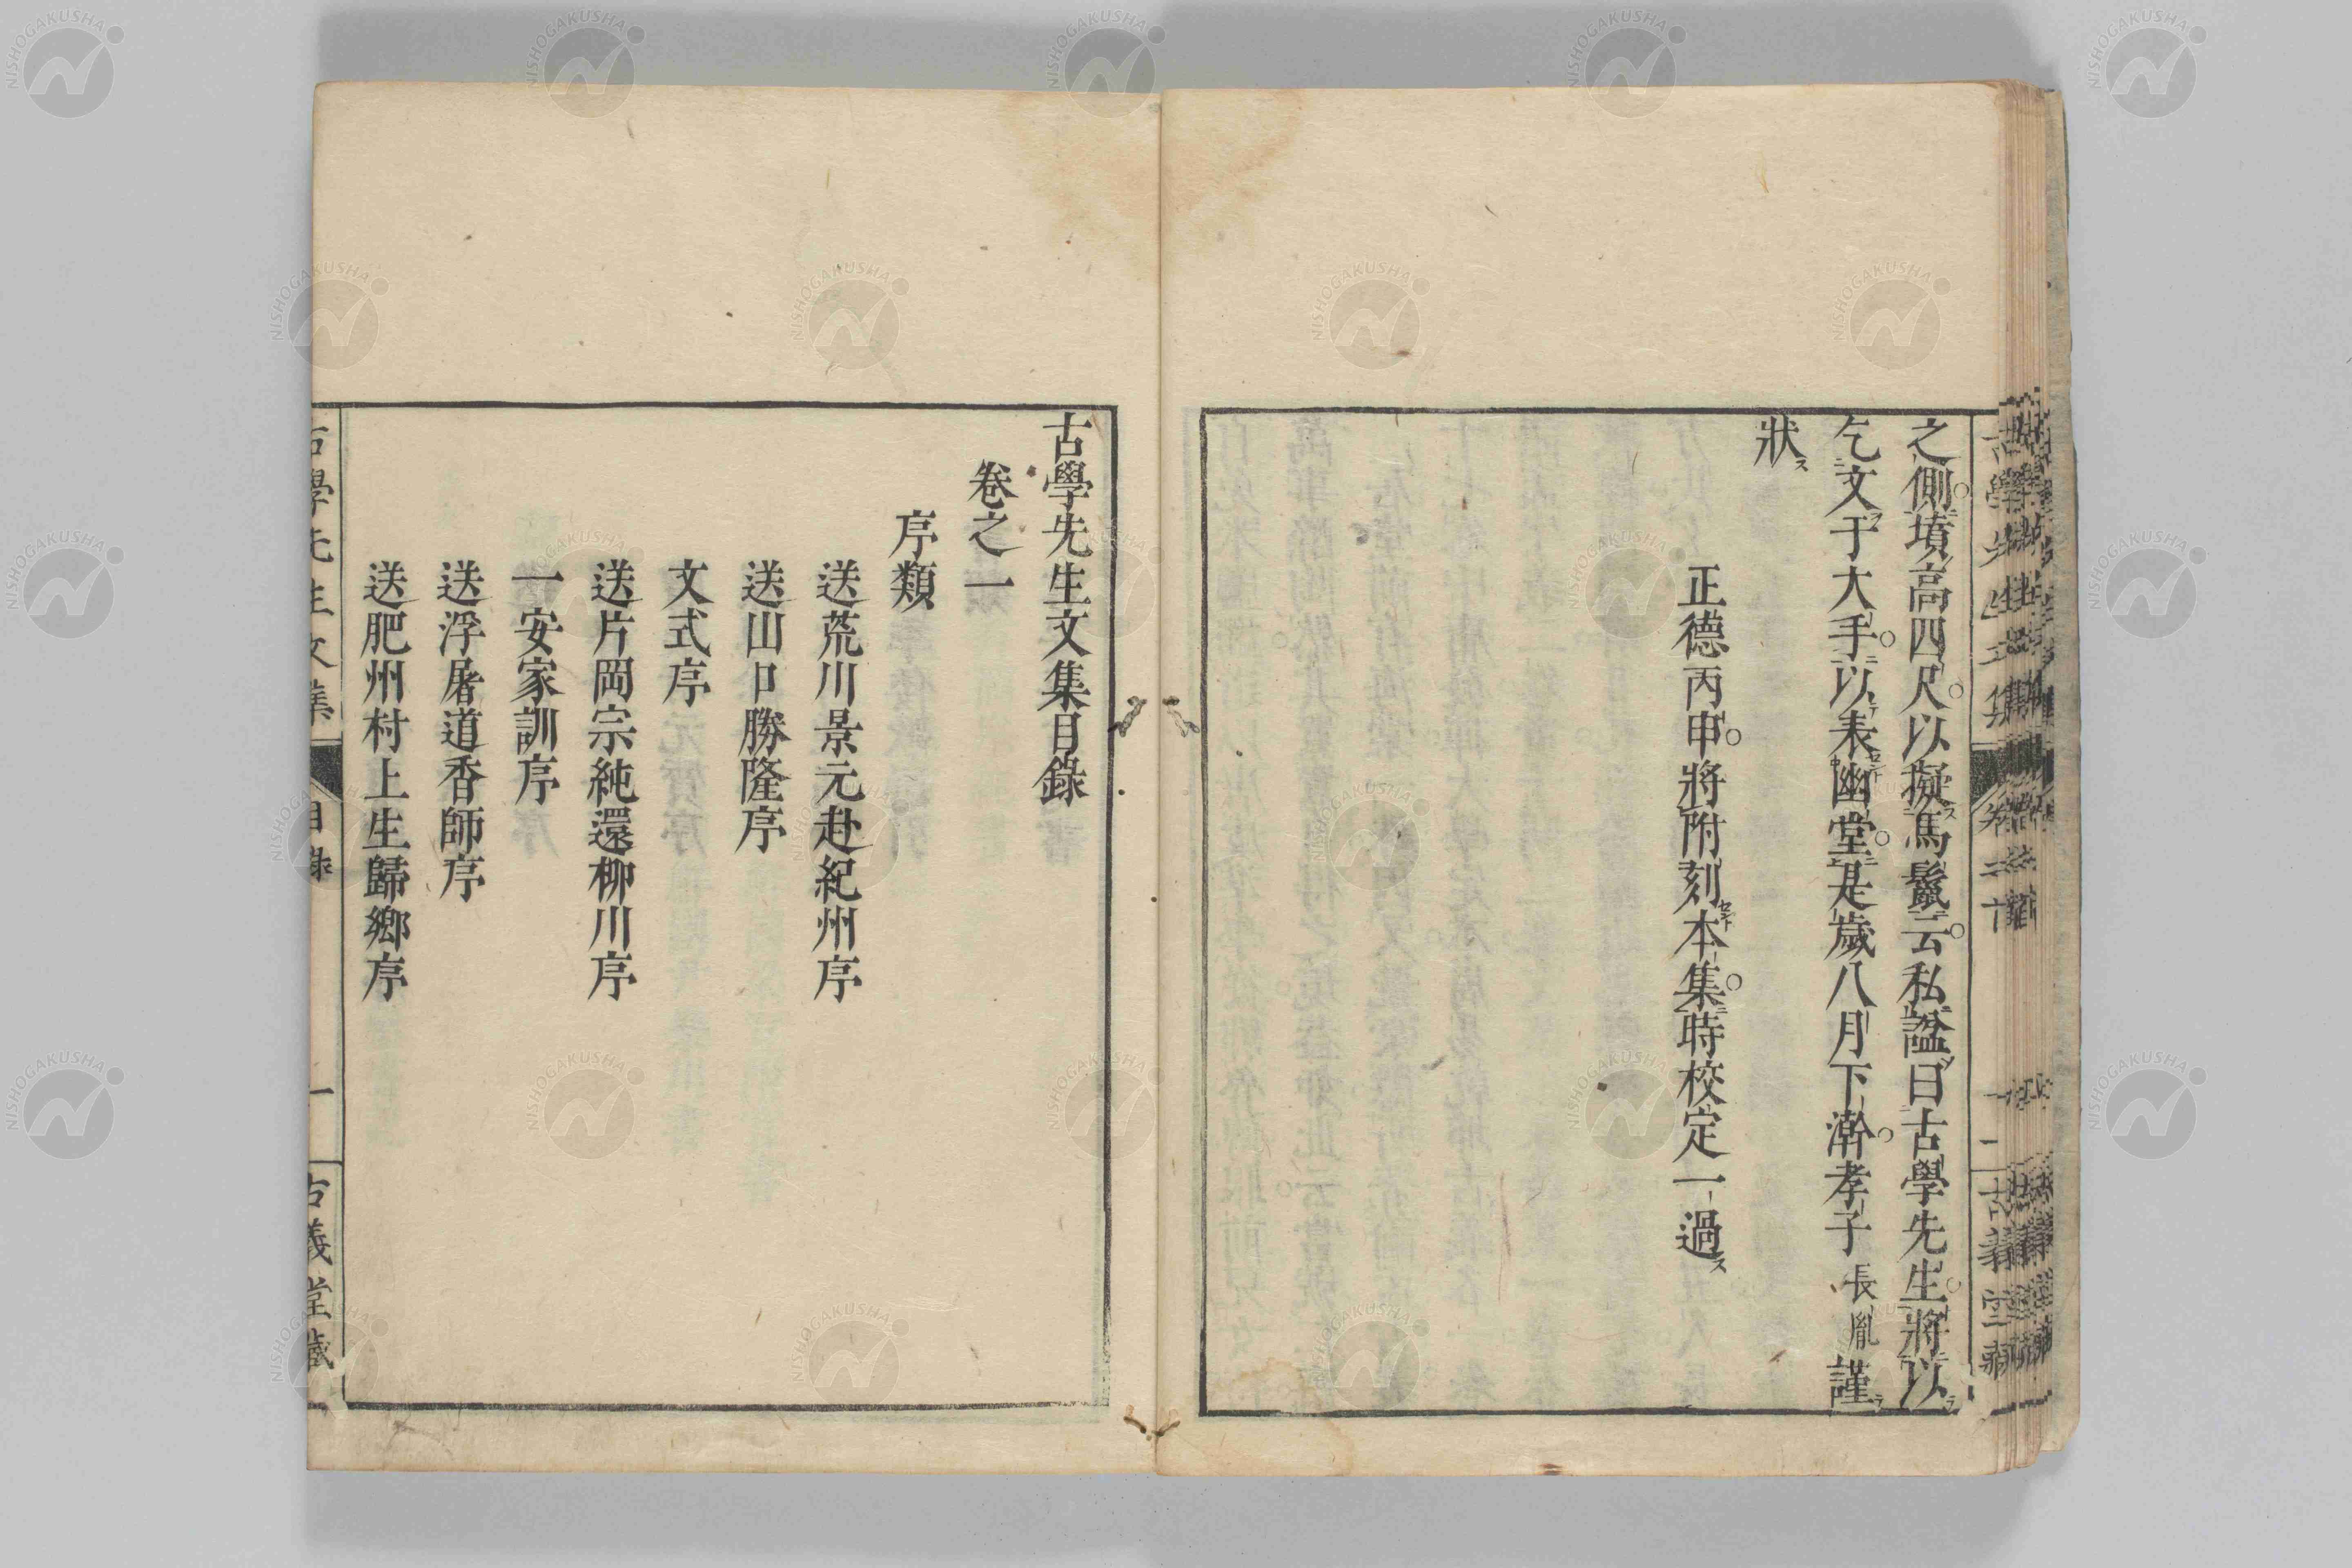 之側墳高四尺以擬馬鬣云私諡曰古學先生將以
乞文于大手以表幽堂是歲八月下澣孝子長胤謹
狀
正德丙申將附刻本集時校定一過
古學先生文集目錄
卷之一
序類
送荒川景元赴紀州序
送山口勝隆序
文式序
送片岡宗純還柳川序
一安家訓序
送浮屠道香師序
送肥州村上生歸鄉序
古學先生文集 目錄 一 古義堂藏
NISHOGAKUSHA